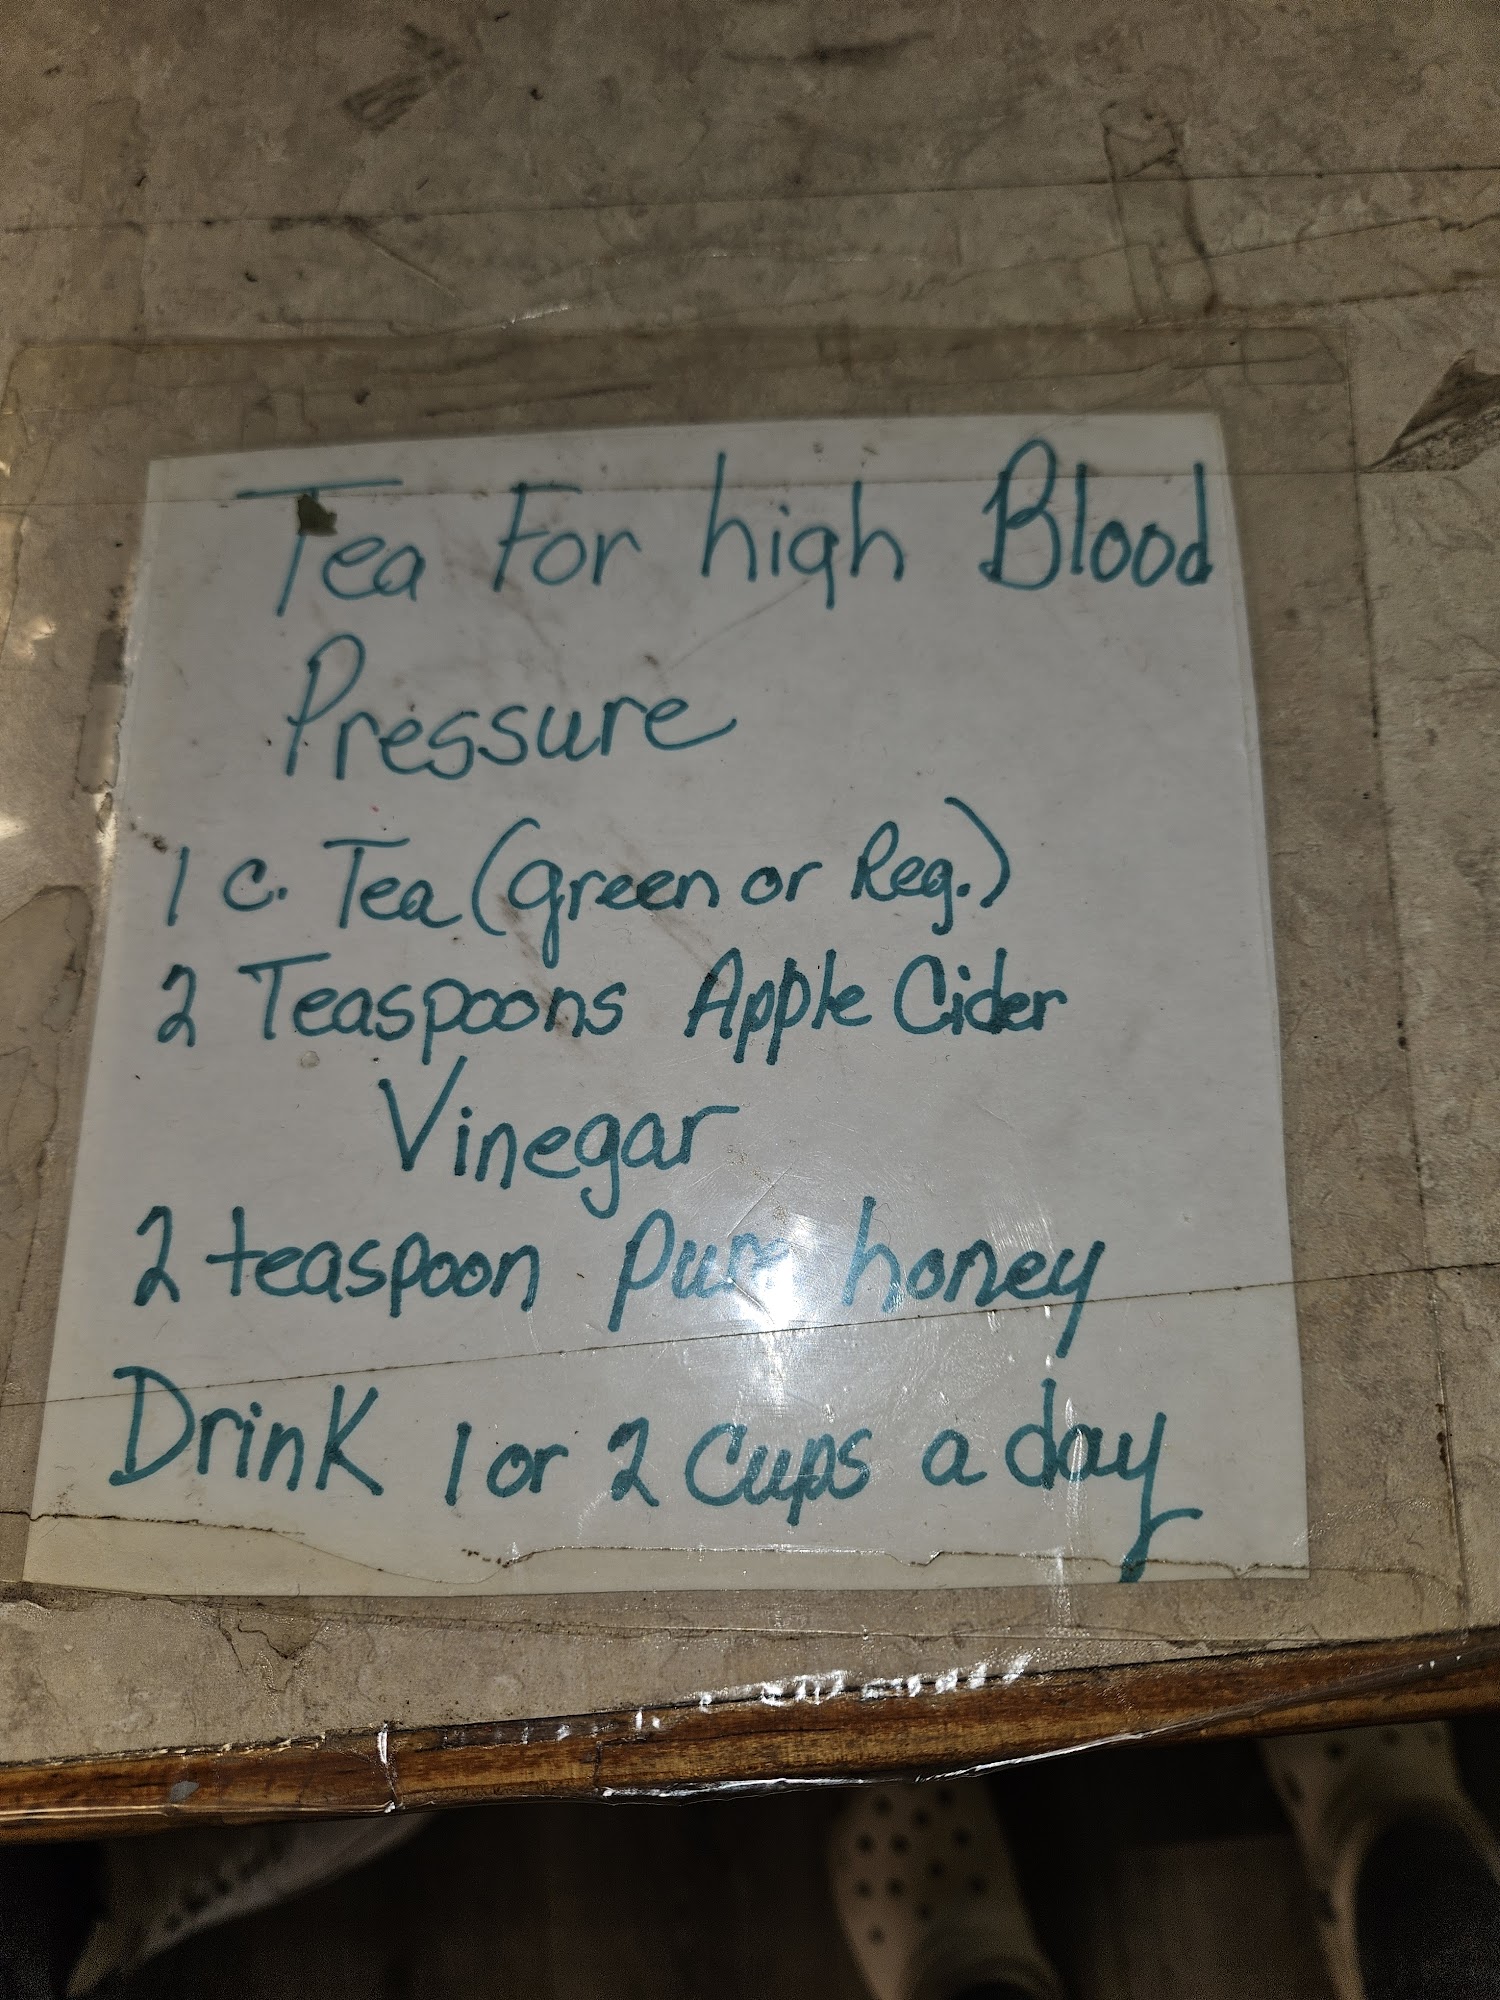 Tea For high Blood
Pressure
1 c. Tea (green or Reg.)
2 Teaspoons Apple Cider
Vinegar
2 teaspoon pure honey
Drink 1 or 2 cups a day